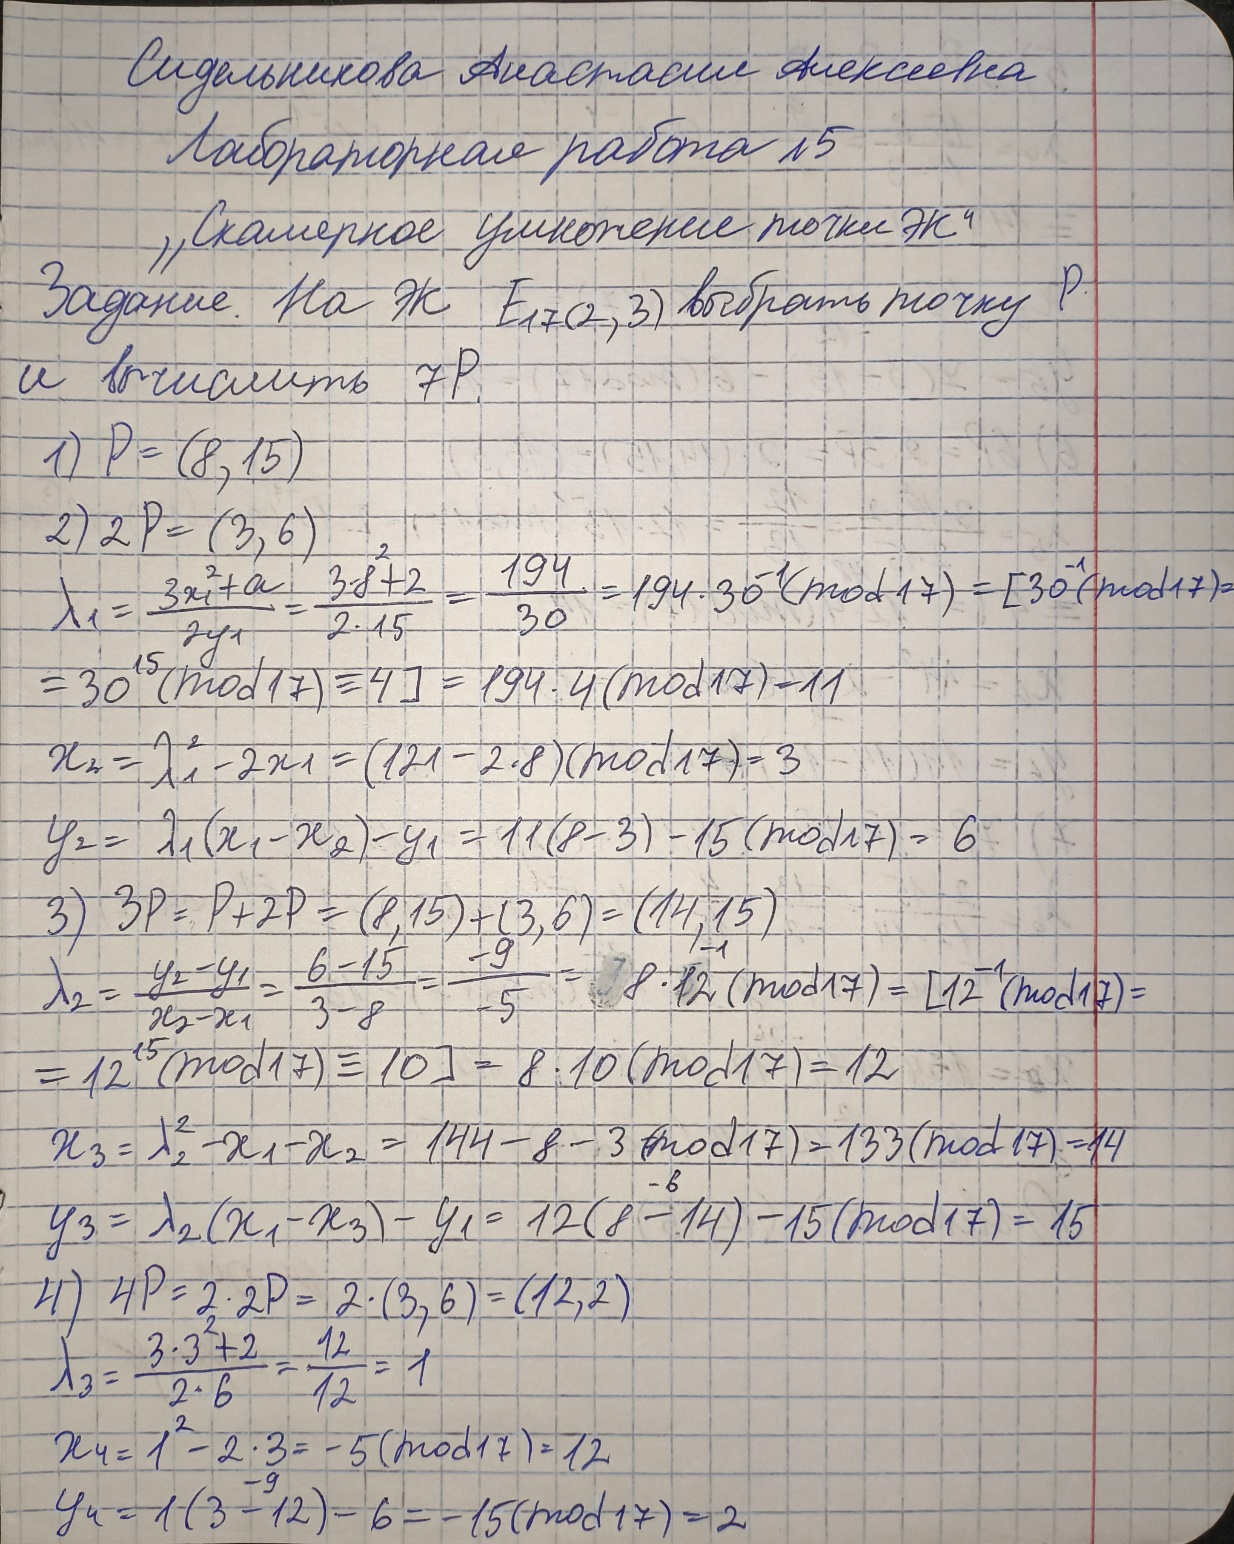 Сидельникова Анастасия Алексеевна
Лабораторная работа №5
„Скалярное умножение точки ЭК“
Задание. На ЭК E₁₇(2,3) выбрать точку P.
и вычислить 7P.
1) P = (8,15)
2) 2P = (3,6)
λ₁ = (3x₁²+a)/(2y₁) = (3·8²+2)/(2·15) = 194/30 = 194·30⁻¹(mod17) = [30⁻¹(mod17)=
=30¹⁵(mod17)≡4] = 194·4(mod17)=11
x₂ = λ₁² - 2x₁ = (121-2·8)(mod17)=3
y₂ = λ₁(x₁-x₂)-y₁ = 11(8-3)-15(mod17)= 6
3) 3P = P+2P = (8,15)+(3,6)=(14,15)
λ₂ = (y₂-y₁)/(x₂-x₁) = (6-15)/(3-8) = -9/-5 = 8·12⁻¹(mod17) = [12⁻¹(mod17)=
=12¹⁵(mod17)≡10] = 8·10(mod17)=12
x₃ = λ₂² -x₁-x₂ = 144-8-3(mod17)=133(mod17)=14
-6
y₃ = λ₂(x₁-x₃)-y₁ = 12(8-14)-15(mod17)=15
4) 4P=2·2P= 2·(3,6)=(12,2)
λ₃ = (3·3²+2)/(2·6) = 12/12 = 1
x₄ = 1²-2·3=-5(mod17)=12
-9
y₄ = 1(3-12)-6=-15(mod17)=2